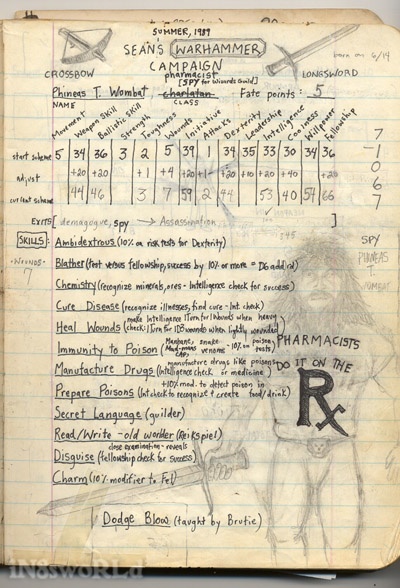 SUMMER, 1989
SEAN'S WARHAMMER
CAMPAIGN
born on 6/14
CROSSBOW
LONGSWORD
pharmacist
(SPY for Wizards Guild)
Phineas T. Wombat charlatan Fate points: 5
NAME CLASS
Movement Weapon Skill Ballistic Skill Strength Toughness Wounds Initiative Attacks Dexterity Leadership Intelligence Coolness Willpower Fellowship
start scheme 5 34 36 3 2 5 39 1 34 35 33 30 34 36
adjust +20 +20 +1 +4 +20 +1 +20 +10 +20 +40 +20
current scheme 44 46 3 7 59 2 44 53 40 54 66
7
-1
0
6
7
EXITS [demagogue, spy → Assassination]
SKILLS:
-WOUNDS-
7
SPY
PHINEAS
T.
WOMBAT
Ambidextrous (10% on risk tests for Dexterity)
Blather (test versus fellowship, success by 10% or more = D6 add'l rd)
Chemistry (recognize minerals, ores - Intelligence check for success)
Cure Disease (recognize illnesses, find cure - Int. check)
Heal Wounds (make Intelligence 1 Turn for 10 wounds when heavy
check: 1 Turn for 1D3 wounds when lightly wounded)
Immunity to Poison (Manbane, snake venom - 10% on poison tests)
Manufacture Drugs (manufacture drugs like poisons
Intelligence check or medicine)
Prepare Poisons (+10% mod. to detect poison in
Int check to recognize + create food/drink)
Secret Language (guilder)
Read/Write - old worlder (Reikspiel)
Disguise (close examination - reveals
fellowship check for success)
Charm (10% modifier to Fel)
Dodge Blow (taught by Brutie)
PHARMACISTS
DO IT ON THE
Rx
IN8sWORLd